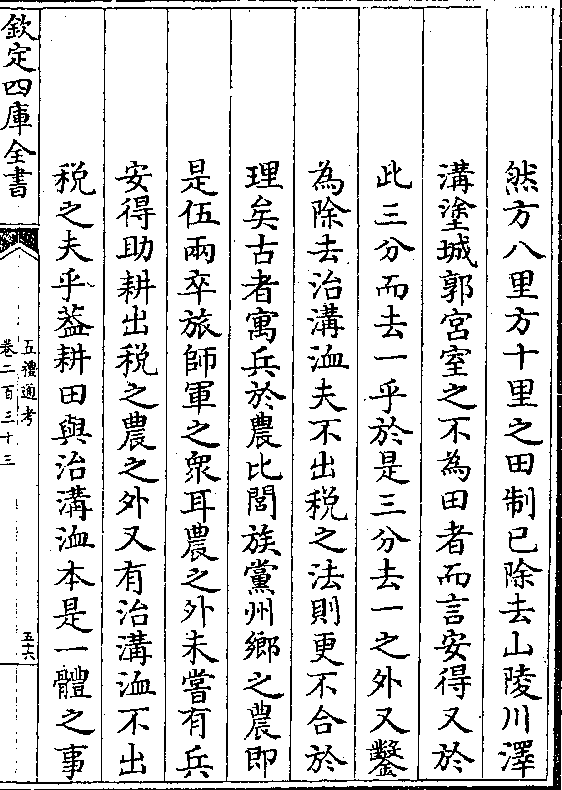 然方八里方十里之田制已除去山陵川澤
溝塗城郭宮室之不為田者而言安得又於
此三分而去一乎於是三分去一之外又鑿
為除去治溝洫夫不出税之法則更不合於
理矣古者寓兵於農比閭族黨州鄉之農即
是伍兩卒旅師軍之衆耳農之外未嘗有兵
安得助耕出税之農之外又有治溝洫不出
税之夫乎葢耕田與治溝洫本是一體之事
欽定四庫全書
五禮通考
卷二百三十三
五十六